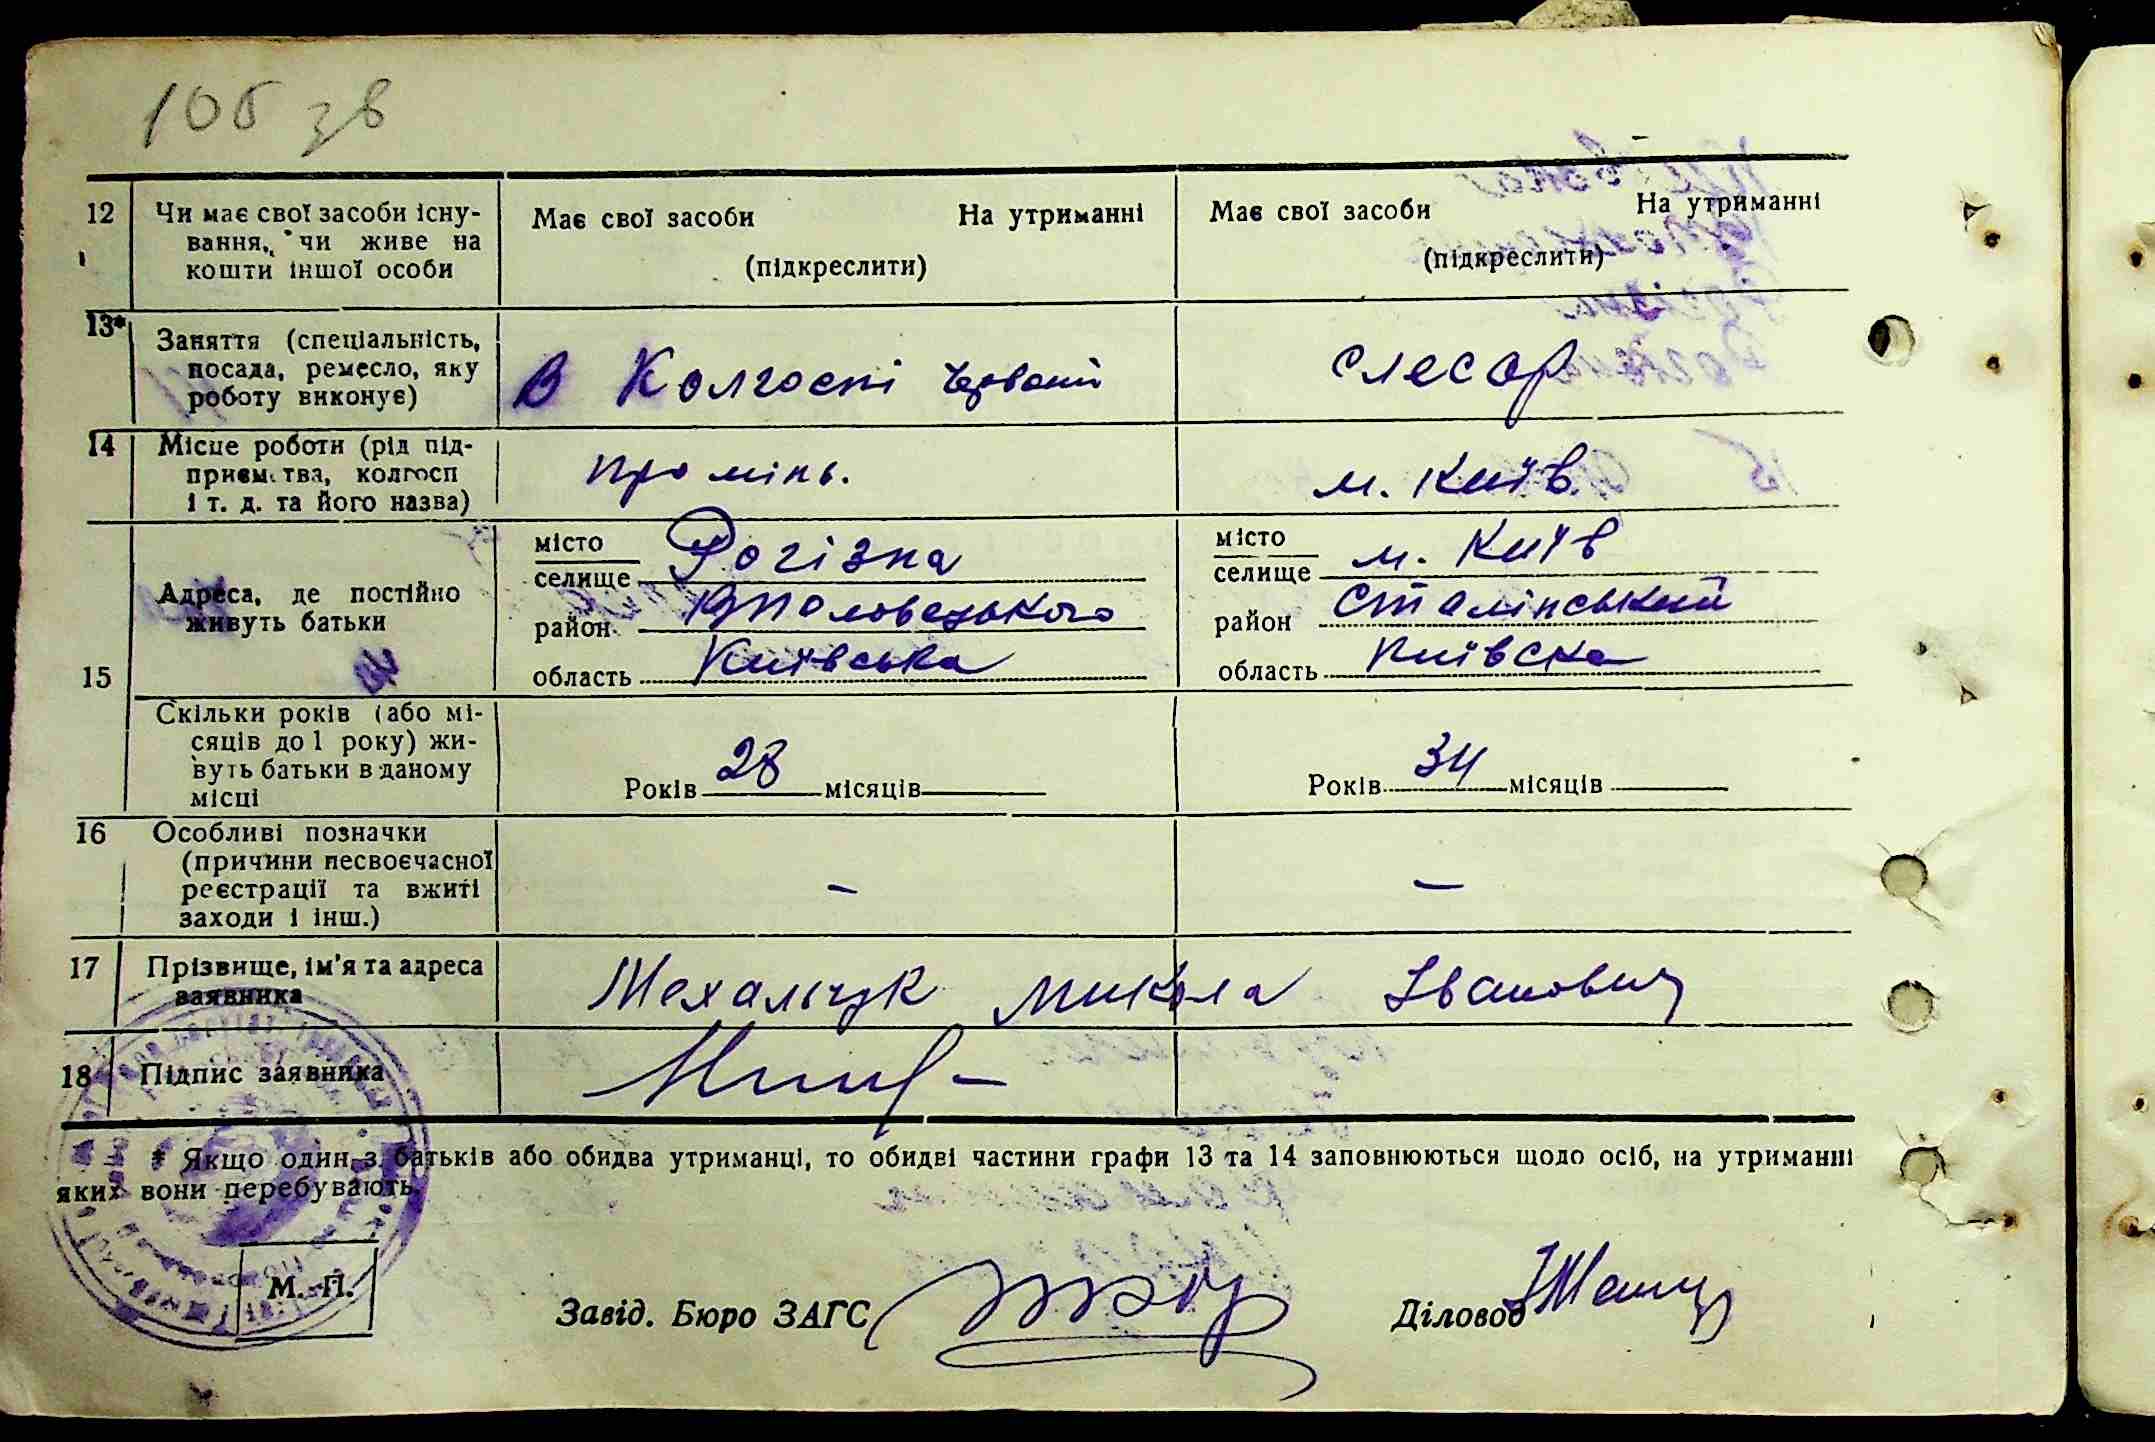 106 зв
12 Чи має свої засоби існу-
вання, чи живе на
кошти іншої особи
Має свої засоби На утриманні
(підкреслити)
Має свої засоби На утриманні
(підкреслити)
13* Заняття (спеціальність,
посада, ремесло, яку
роботу виконує)
В Колгоспі Червоний
слесар
14 Місце роботи (рід під-
приємства, колгосп
і т. д. та його назва)
Промінь.
м. Київ.
15 Адреса, де постійно
живуть батьки
місто
селище Рогізна
район
область Київська
місто
селище м. Київ
район Сталінський
область Київска
Скільки років (або мі-
сяців до 1 року) жи-
вуть батьки в даному
місці
Років 28 місяців
Років 34 місяців
16 Особливі позначки
(причини несвоєчасної
реєстрації та вжиті
заходи і інш.)
–
–
17 Прізвище, ім'я та адреса
заявника
Мехальчук Микола Іванович
18 Підпис заявника
* Якщо один з батьків або обидва утриманці, то обидві частини графи 13 та 14 заповнюються щодо осіб, на утриманні
яких вони перебувають.
М. П.
Завід. Бюро ЗАГС
Діловод